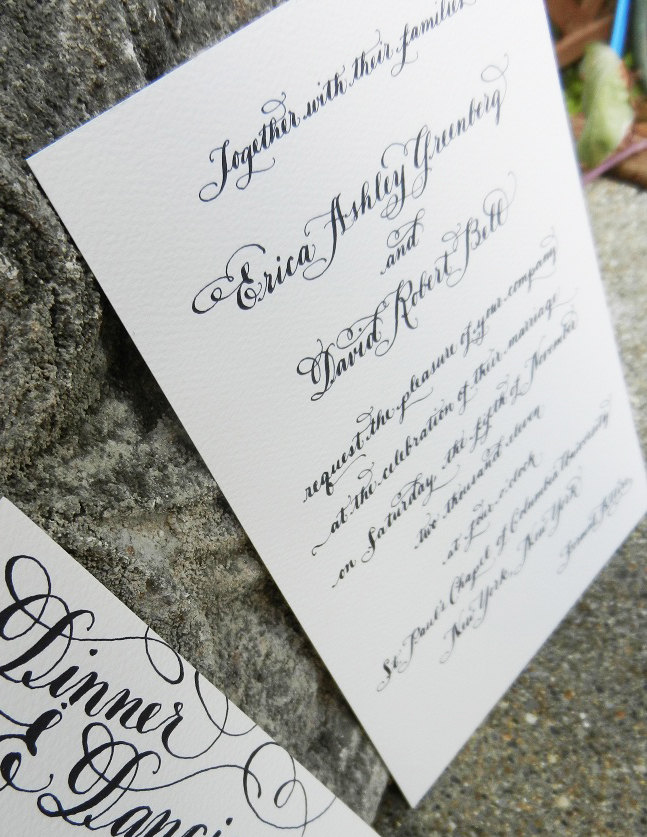 Together with their families
Erica Ashley Greenberg
and
David Robert Bell
request the pleasure of your company
at the celebration of their marriage
on Saturday, the fifth of November
two thousand eleven
at four o'clock
St. Paul's Chapel of Columbia University
New York, New York
Dinner
& Danci